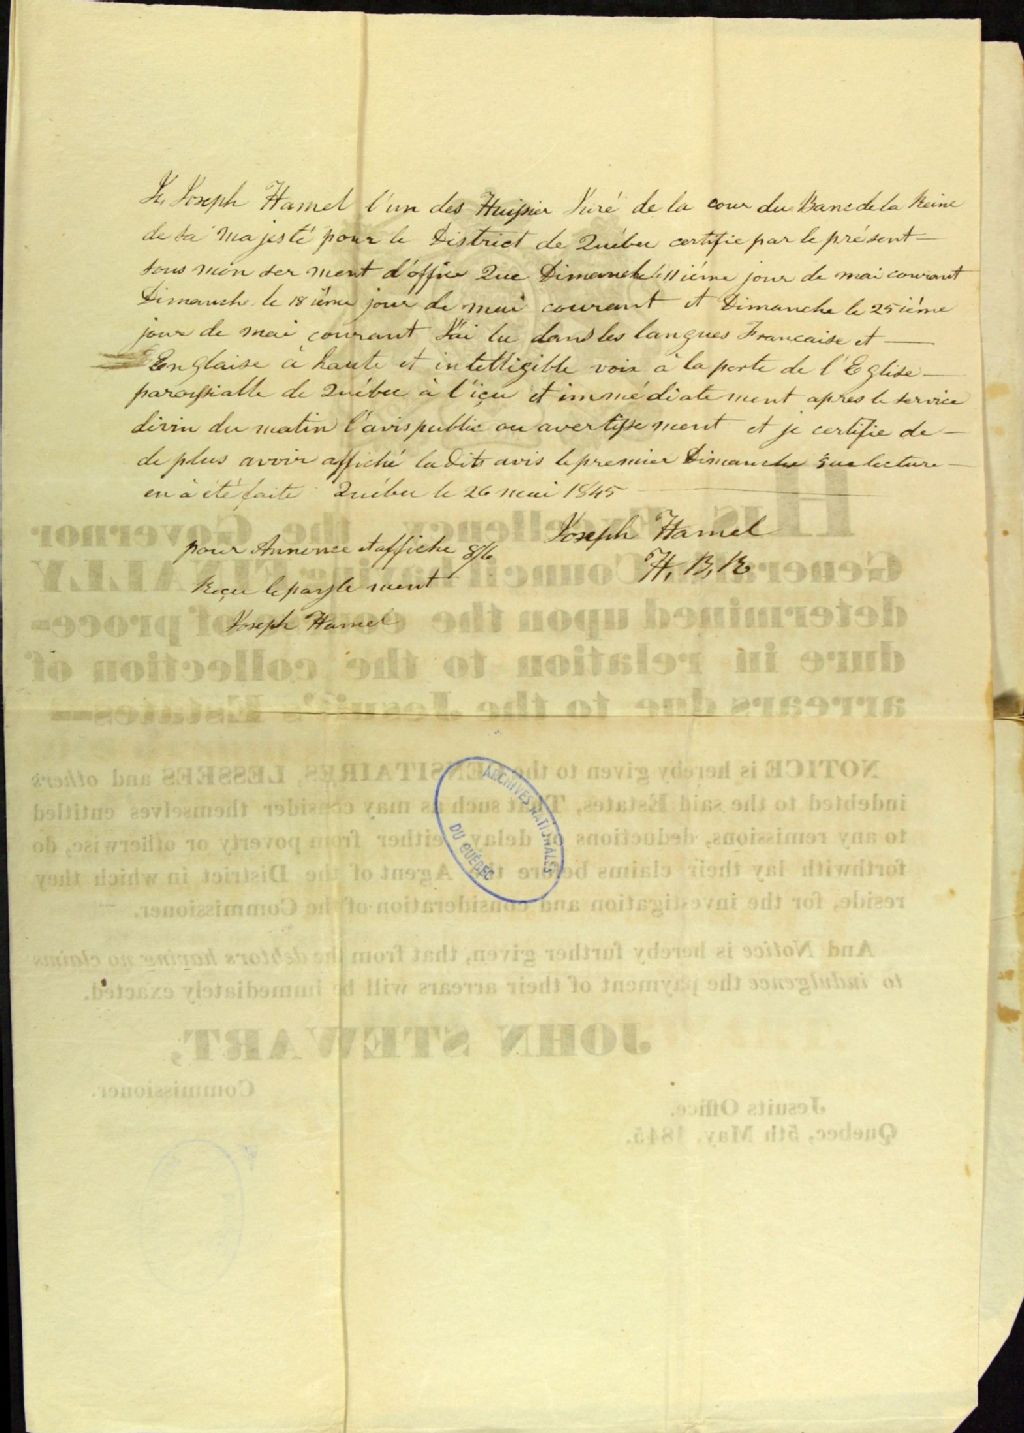 Je, Joseph Hamel l'un des Huissier Juré de la cour du Banc de la Reine
de Sa Majesté pour le District de Québec certifie par le présent —
sous mon serment d'office Que Dimanche le 11 ième jour de mai courant
Dimanche le 18 ième jour de mai courant et Dimanche le 25 ième
jour de mai courant J'ai lu dans les langues Francaise et —
Englaise à haute et intelligible voix à la porte de l'Eglise —
paroissialle de Québec à l'içu et immédiatement apres le service
divin du matin l'avis public ou avertissement et je certifie de —
de plus avoir affiché la dits avis le premier Dimanche que lecture —
en à été faite Québec le 26 mai 1845 —
Joseph Hamel
H. B. R
pour Annonce et affiche 8/6
Reçu le payement
Joseph Hamel
His Excellency the Governor
General in Council having FINALLY
determined upon the course of proce-
dure in relation to the collection of
arrears due to the Jesuit's Estates—
NOTICE is hereby given to the CENSITAIRES, LESSEES and others
indebted to the said Estates, That such as may consider themselves entitled
to any remissions, deductions or delay, either from poverty or otherwise, do
forthwith lay their claims before the Agent of the District in which they
reside, for the investigation and consideration of the Commissioner.
And Notice is hereby further given, that from the debtors having no claims
to indulgence the payment of their arrears will be immediately exacted.
JOHN STEWART,
Commissioner.
Jesuits Office.
Quebec, 5th May, 1845.
ARCHIVES NATIONALES
DU QUÉBEC